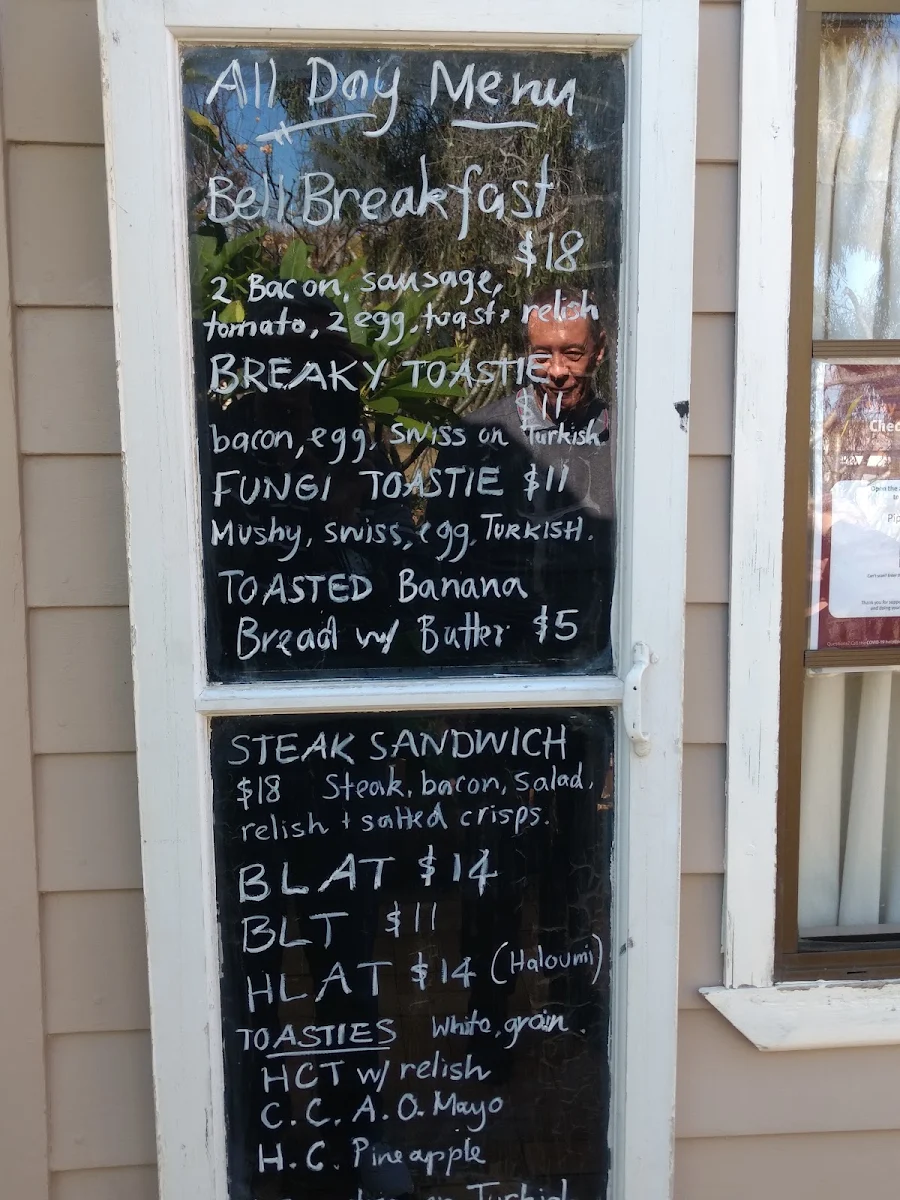 All Day Menu
Bell Breakfast
$18
2 Bacon, sausage,
tomato, 2 egg, toast, relish
BREAKY TOASTIE
$11
bacon, egg, swiss on Turkish
FUNGI TOASTIE $11
Mushy, swiss, egg, TURKISH.
TOASTED Banana
Bread w/ Butter $5
STEAK SANDWICH
$18 Steak, bacon, salad,
relish + salted crisps.
BLAT $14
BLT $11
HLAT $14 (Haloumi)
TOASTIES white, grain.
HCT w/ relish
C.C.A.O. Mayo
H.C. Pineapple
on Turkish
Chec